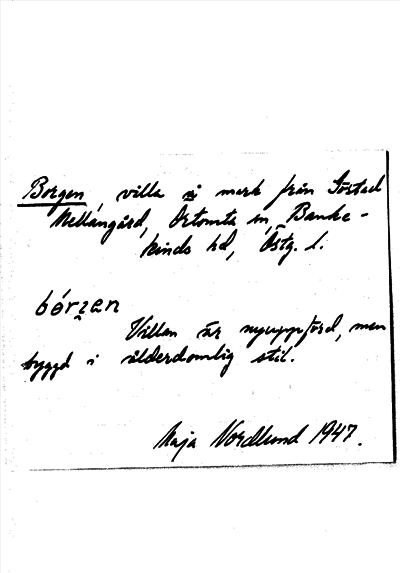 Borgen, villa i mark från Torstad
Mellangård, Örtomta sn, Banke-
kinds hd, Östg. l.
bórgen
Villan är nyuppförd, men
byggd i ålderdomlig stil.
Maja Nordlund 1947.